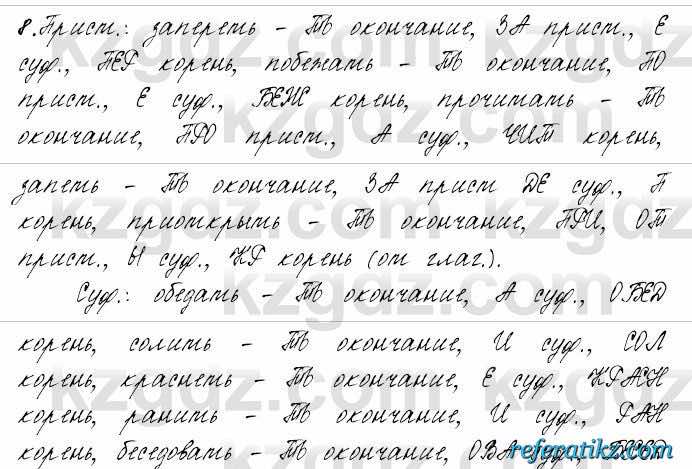 8.Прист.: запереть - ТЬ окончание, ЗА прист., Е
суф., ПЕР корень, побежать - ТЬ окончание, ПО
прист., Е суф., БЕЖ корень, прочитать - ТЬ
окончание, ПРО прист., А суф., ЧИТ корень,
запеть - ТЬ окончание, ЗА прист ДЕ суф., П
корень, приоткрыть - ТЬ окончание, ПРИ, ОТ
прист., Ы суф., КР корень (от глаг.).
Суф.: обедать - ТЬ окончание, А суф., ОБЕД
корень, солить - ТЬ окончание, И суф., СОЛ
корень, краснеть - ТЬ окончание, Е суф., КРАСН
корень, ранить - ТЬ окончание, И суф., РАН
корень, беседовать - ТЬ окончание, ОВА суф., БЕСЕД
referatikz.com